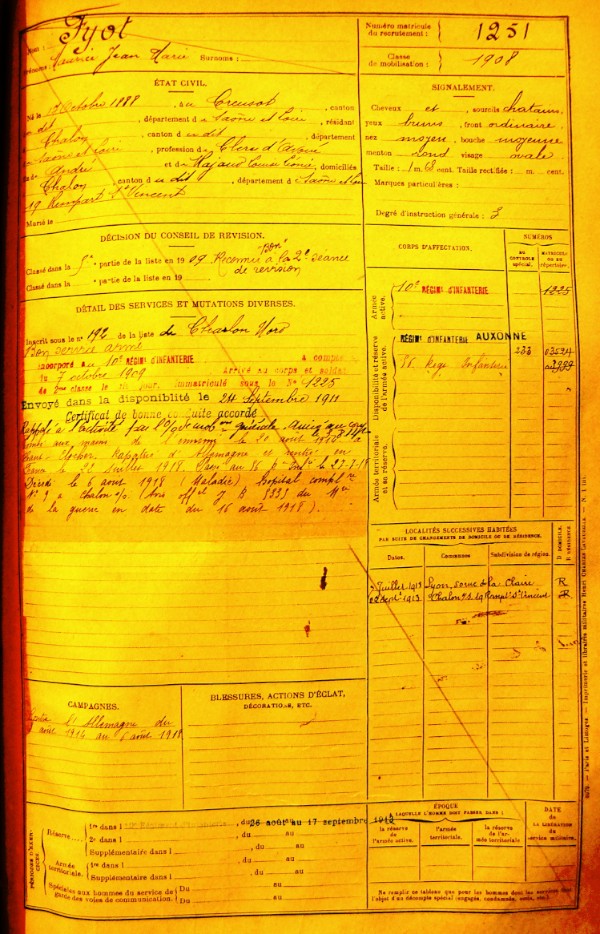 Nom : Fyot
Prénoms : Maurice Jean Marie Surnoms :
Numéro matricule
du recrutement :
1251
Classe
de mobilisation :
1908
ÉTAT CIVIL.
Né le 7 Octobre 1888, au Creusot, canton
du dit, département de Saône et Loire, résidant
Chalon, canton du dit, département
Saône et Loire, profession de Clerc d'avoué
André et de, domiciliés
Chalon, canton du dit, département de Saône et Loire
19 Rempart St Vincent
Marié le
SIGNALEMENT.
Cheveux et sourcils chatains
yeux bruns, front ordinaire
nez moyen, bouche moyenne
menton rond visage ovale
Taille : 1 m. cent. Taille rectifiée : m. cent.
Marques particulières :
Degré d'instruction générale : 3
DÉCISION DU CONSEIL DE RÉVISION.
Classé dans la partie de la liste en 1909 Reconnu Bon à la 2e séance
de révision
Classé dans la partie de la liste en 19
CORPS D'AFFECTATION.
NUMÉROS
AU CONTRÔLE spécial.
MATRICULE OU AU répertoire.
Armée active.
10e RÉGIMt D'INFANTERIE 1225
Disponibilité et réserve de l'armée active.
RÉGIMt D'INFANTERIE AUXONNE
Regt Infanterie
Armée territoriale et sa réserve.
DÉTAIL DES SERVICES ET MUTATIONS DIVERSES.
Inscrit sous le n° 192 de la liste de Chalon Nord
Bon service armé
incorporé au 10e RÉGIMt D'INFANTERIE à compter
du 7 octobre 1909 Arrivé au corps et soldat
de 2me classe le dit jour. Immatriculé sous le N° 1225
Envoyé dans la disponiblité le 24 Septembre 1911
Certificat de bonne conduite accordé
Rappelé à l'activité
aux mains de l'ennemi le 20 août 1914 à
Rapatrié d'Allemagne et rentré en
France le 22 Juillet 1918. Passé au
Décédé le 6 août 1918 (Maladie) Hopital complre
N° à Chalon s/s. (Avis offiel N° B 5333 du Mre
de la guerre en date du 16 août 1918).
LOCALITÉS SUCCESSIVES HABITÉES
PAR SUITE DE CHANGEMENTS DE DOMICILE OU DE RÉSIDENCE.
Dates. Communes Subdivision de région. D DOMICILE. R RÉSIDENCE.
Juillet 1913 Lyon, la Claire R
Septe 1913 Chalon s.s. 19 Rempt St Vincent R
CAMPAGNES.
Contre l'Allemagne du
août 1914 au 6 août 1918
BLESSURES, ACTIONS D'ÉCLAT,
DÉCORATIONS, ETC.
PÉRIODES D'EXERCICES
Réserve 1re dans l, du 26 août au 17 septembre 1913
2e dans l, du au
Supplémentaire dans l, du au
Armée territoriale. 1re dans l, du au
Supplémentaire dans l, du au
Spéciales aux hommes du service de garde des voies de communication. Du au
Du au
ÉPOQUE
À LAQUELLE L'HOMME DOIT PASSER DANS :
la réserve de l'armée active.
l'armée territoriale.
la réserve de l'armée territoriale
DATE
DE LA LIBÉRATION
du service militaire.
Ne remplir ce tableau que pour les hommes dont les services sont
l'objet d'un décompte spécial (engagés, condamnés, omis, etc.)
Paris et Limoges. — Imprimerie et librairie militaires Henri CHARLES-LAVAUZELLE.